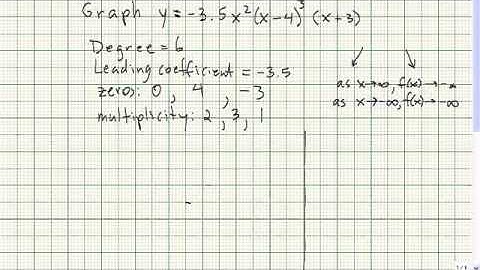 Graph y = -3.5x²(x-4)³(x+3)
Degree = 6
Leading coefficient = -3.5
zeros: 0, 4, -3
multiplicity: 2, 3, 1
as x→∞, f(x)→-∞
as x→-∞, f(x)→-∞